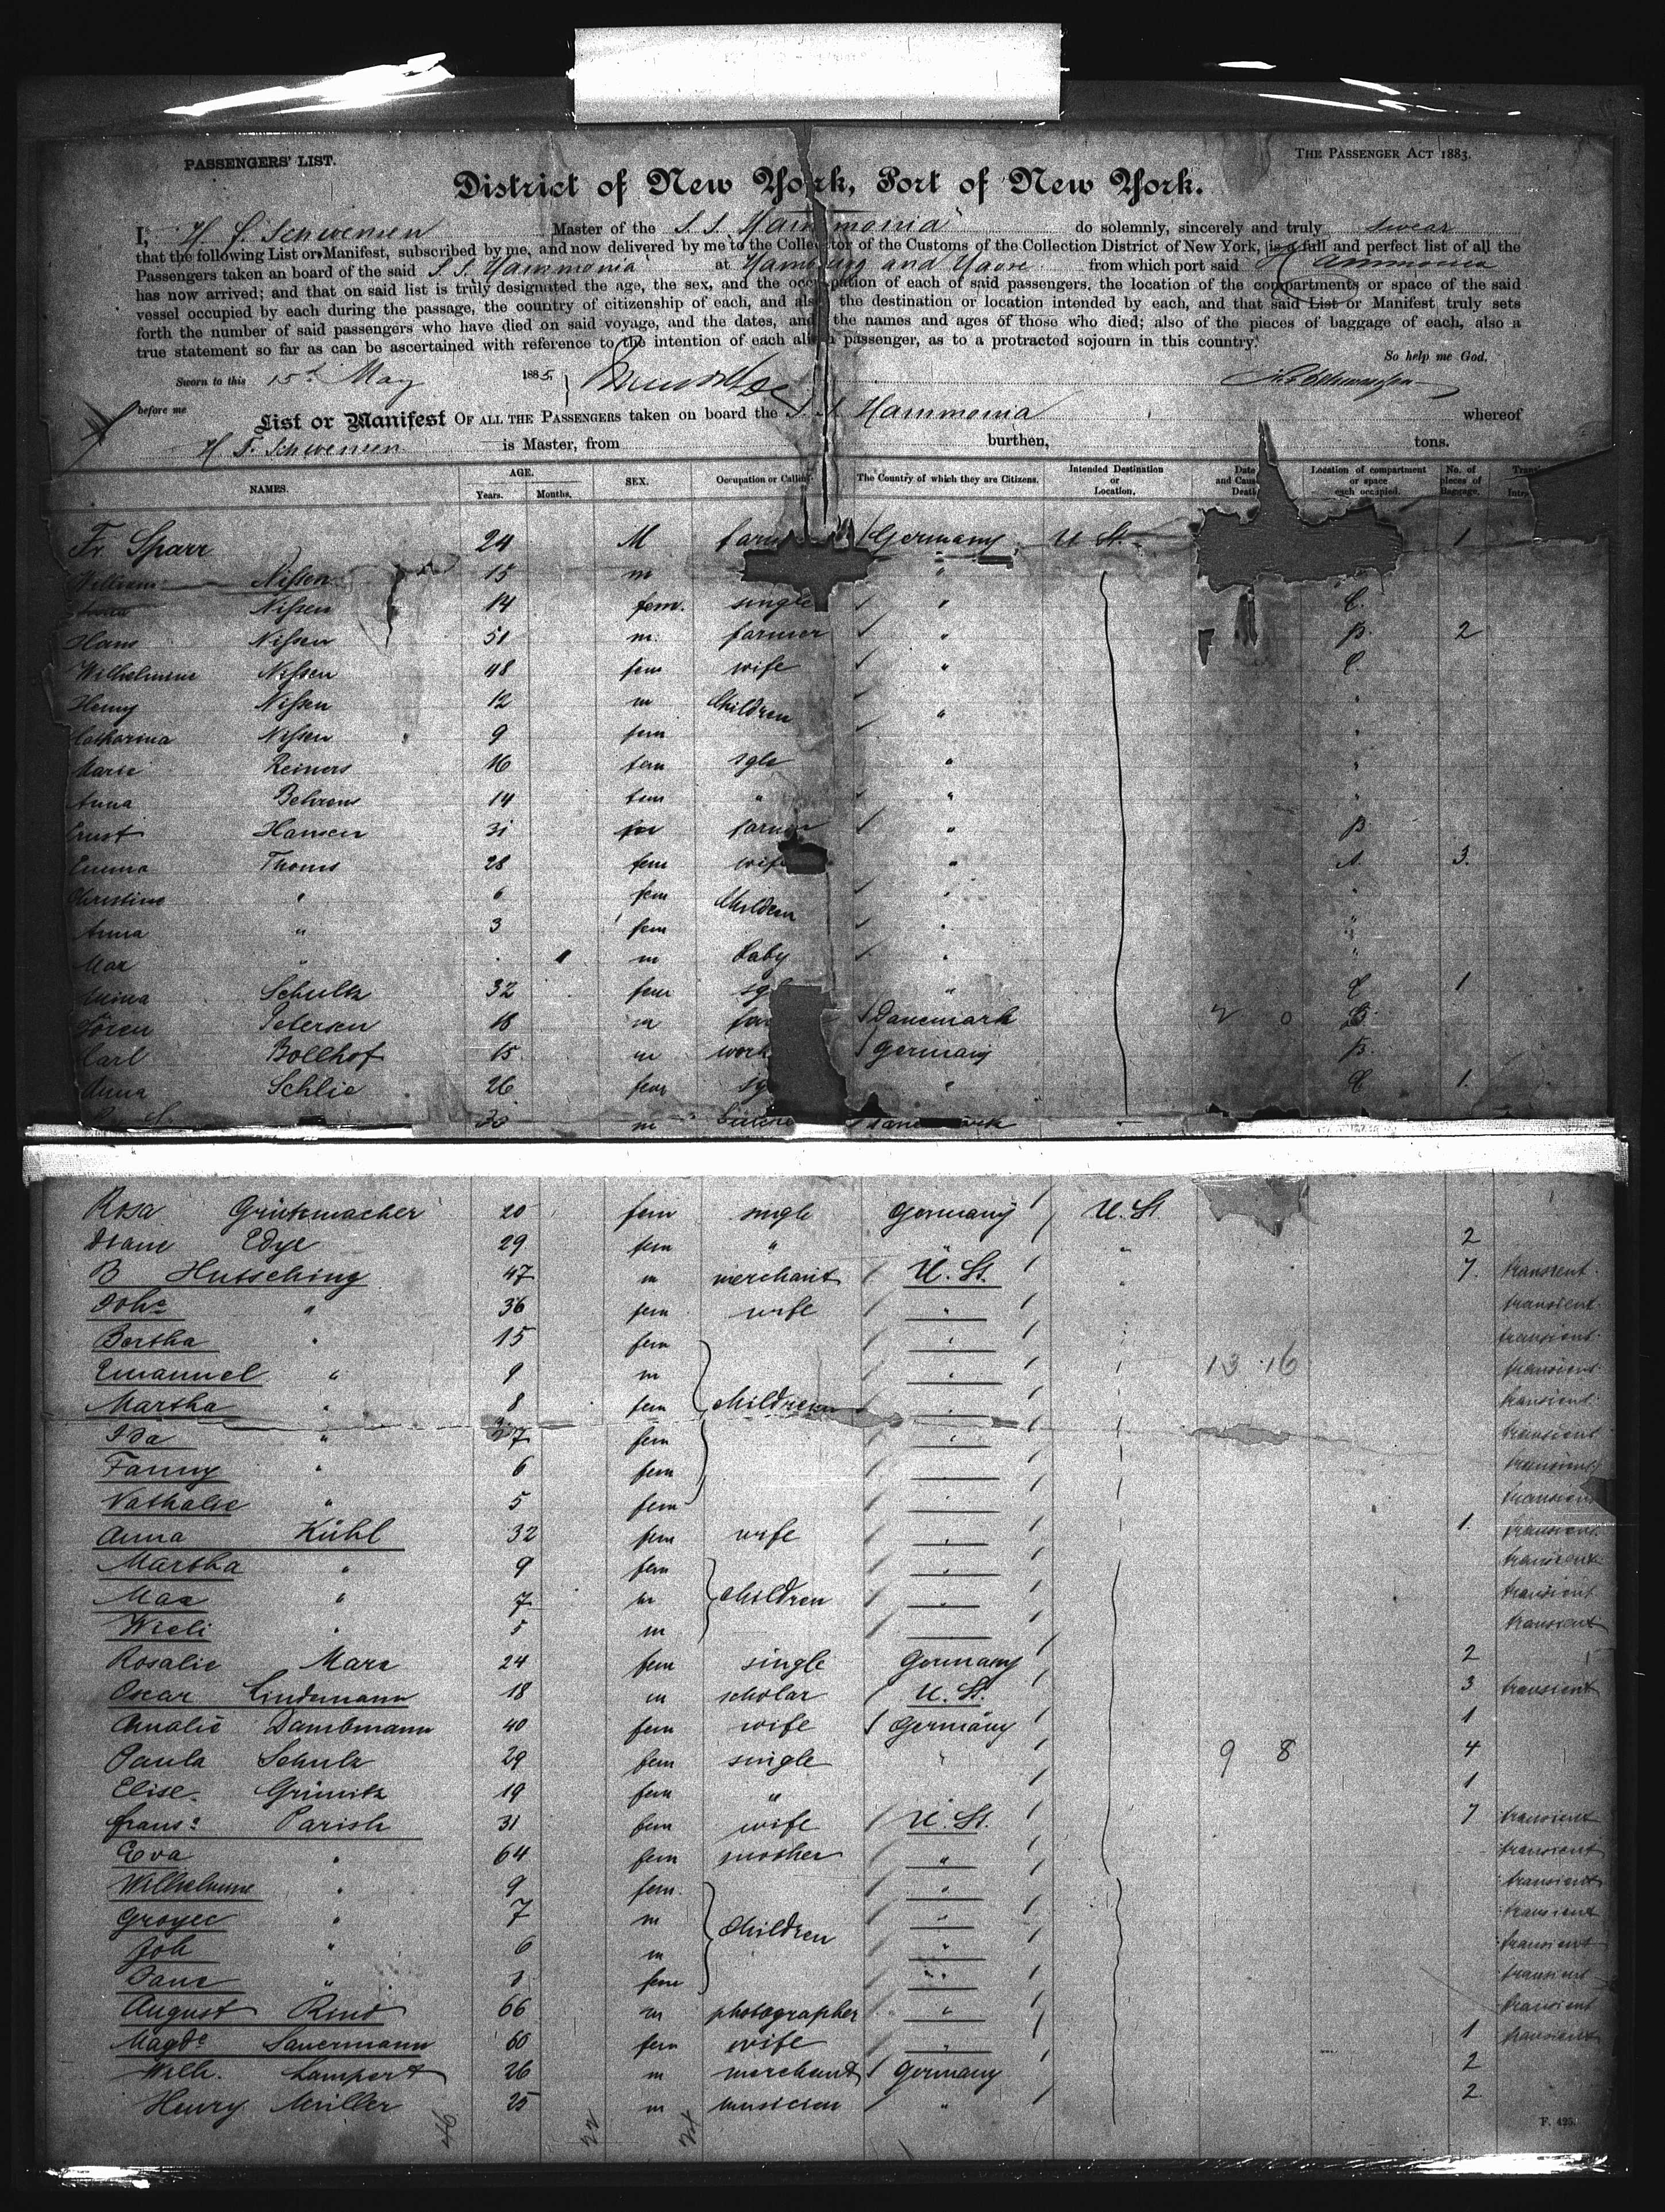 PASSENGERS' LIST.
THE PASSENGER ACT 1883.
District of New York, Port of New York.
I, H. F. Schwensen Master of the S. S. Hammonia do solemnly, sincerely and truly swear
that the following List or Manifest, subscribed by me, and now delivered by me to the Collector of the Customs of the Collection District of New York, is a full and perfect list of all the
Passengers taken an board of the said S. S. Hammonia at Hamburg and Havre from which port said Hammonia
has now arrived; and that on said list is truly designated the age, the sex, and the occupation of each of said passengers, the location of the compartments or space of the said
vessel occupied by each during the passage, the country of citizenship of each, and also the destination or location intended by each, and that said List or Manifest truly sets
forth the number of said passengers who have died on said voyage, and the dates, and the names and ages of those who died; also of the pieces of baggage of each, also a
true statement so far as can be ascertained with reference to the intention of each alien passenger, as to a protracted sojourn in this country.
So help me God.
Sworn to this 15th May 1885,
before me
List or Manifest OF ALL THE PASSENGERS taken on board the S. S. Hammonia whereof
H F. Schwensen is Master, from burthen, tons.
NAMES. AGE. Years. Months. SEX. Occupation or Calling. The Country of which they are Citizens. Intended Destination or Location. Date and Cause Death Location of compartment or space each occupied. No. of pieces of Baggage.
Fr. Sparr 24 M farm Germany U St. 1
William Nissen 15 m "
Nissen 14 fem. single " C.
Hans Nissen 51 m. farmer " B. 2
Wilhelmine Nissen 48 fem wife " C
Henny Nissen 12 m Children " "
Catharina Nissen 9 fem "
Marie Reiners 16 fem sgle " "
Anna Behrens 14 fem " " "
Ernst Hansen 31 farmer " B
Emma Thoms 28 fem wife " A. 3.
Christine " 6 fem Children " "
Anna " 3 fem " "
Max " 1 m baby " "
Schultz 32 fem sgl " C 1
Sören Petersen 18 m far Danemark B.
Carl Bollhof 15 m work Germany B.
Anna Schlie 26 fem sg " C 1.
m
Rosa Grützmacher 20 fem single Germany U. St.
Edye 29 fem " " " 2
B Hutsching 47 m merchant U. St. " 7. transient
Johe " 36 fem wife " transient
Bertha " 15 fem " transient
Emanuel " 9 m " 13 16 transient
Martha " 8 fem children " transient
Ida " 7 fem " transient
Fanny " 6 fem " transient
Nathalie " 5 fem " transient
Anna Kühl 32 fem wife " 1. transient
Martha " 9 fem " transient
Max " 7 m children " transient
Wieli " 5 m " transient
Rosalie Marx 24 fem single Germany 2
Oscar Lindemann 18 m scholar U. St. 3 transient
Amalie Dambmann 40 fem wife Germany 1
Paula Schulz 29 fem single " 9 8 4
Elise Grünitz 19 fem " 1
frans: Parish 31 fem wife U. St. 7 transient
Eva " 64 fem mother " transient
Wilhelmine " 9 fem. " transient
Groyee " 7 m children " transient
Joh " 6 m " transient
Jane " fem " transient
August Rind 66 m photographer " transient
Magde Sauermann 60 fem wife " 1 transient
Wilh. Lampert 26 m merchant Germany 2
Henry Müller 25 m musician " 2
46 22 24
F. 495.